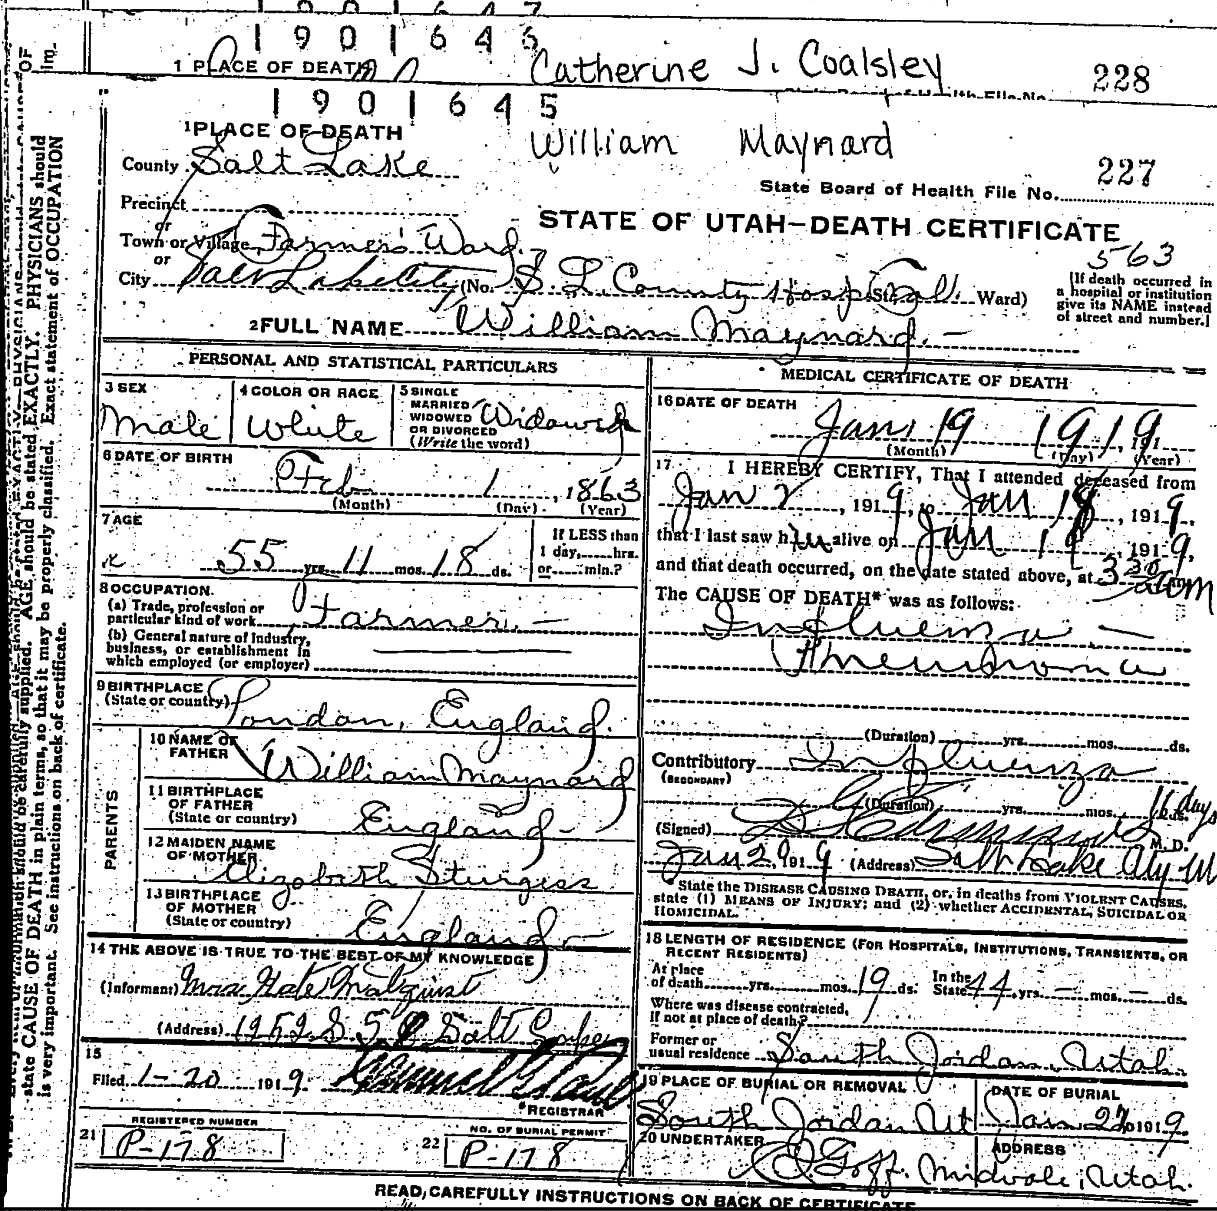 1901646
1 PLACE OF DEATH
Catherine J. Coalsley
228
1901645
1 PLACE OF DEATH
William Maynard
County Salt Lake
State Board of Health File No. 227
Precinct
or
STATE OF UTAH—DEATH CERTIFICATE
Town or Village Farmers Ward
563
or
City Salt Lake City (No. S. L. County Hospital St. Ward)
[If death occurred in a hospital or institution give its NAME instead of street and number.]
2 FULL NAME William Maynard
PERSONAL AND STATISTICAL PARTICULARS
3 SEX Male
4 COLOR OR RACE White
5 SINGLE MARRIED WIDOWED OR DIVORCED (Write the word) Widowed
6 DATE OF BIRTH Feb 1, 1863
(Month) (Day) (Year)
7 AGE 55 yrs. 11 mos. 18 ds.
If LESS than 1 day, hrs. or min.?
8 OCCUPATION.
(a) Trade, profession or particular kind of work Farmer
(b) General nature of industry, business, or establishment in which employed (or employer)
9 BIRTHPLACE (State or country) London, England
PARENTS
10 NAME OF FATHER William Maynard
11 BIRTHPLACE OF FATHER (State or country) England
12 MAIDEN NAME OF MOTHER Elizabeth Sturgess
13 BIRTHPLACE OF MOTHER (State or country) England
14 THE ABOVE IS TRUE TO THE BEST OF MY KNOWLEDGE
(Informant) Mrs. Kate Malquist
(Address) 1252 S 5 Salt Lake
15
Filed 1-20 1919.
REGISTRAR
21 REGISTERED NUMBER P-178
22 NO. OF BURIAL PERMIT P-178
MEDICAL CERTIFICATE OF DEATH
16 DATE OF DEATH Jan 19 1919
(Month) (Day) (Year)
17 I HEREBY CERTIFY, That I attended deceased from
Jan 2, 1919, to Jan 18, 1919,
that I last saw him alive on Jan 18, 1919,
and that death occurred, on the date stated above, at 3 30 am
The CAUSE OF DEATH* was as follows:
Influenza —
Pneumonia
(Duration) yrs. mos. ds.
Contributory Influenza
(SECONDARY)
(Duration) yrs. mos. 16 days
(Signed) M.D.
Jan 29 1919 (Address) Salt Lake City Ut
*State the DISEASE CAUSING DEATH, or, in deaths from VIOLENT CAUSES, state (1) MEANS OF INJURY; and (2) whether ACCIDENTAL, SUICIDAL OR HOMICIDAL.
18 LENGTH OF RESIDENCE (FOR HOSPITALS, INSTITUTIONS, TRANSIENTS, OR RECENT RESIDENTS)
At place of death yrs. mos. 19 ds. In the State 44 yrs. — mos. — ds.
Where was disease contracted, if not at place of death?
Former or usual residence South Jordan, Utah.
19 PLACE OF BURIAL OR REMOVAL South Jordan Ut
DATE OF BURIAL Jan 22 1919.
20 UNDERTAKER Goff.
ADDRESS Midvale, Utah.
READ CAREFULLY INSTRUCTIONS ON BACK OF CERTIFICATE
AGE should be stated EXACTLY. PHYSICIANS should
state CAUSE OF DEATH in plain terms, so that it may be properly classified. Exact statement of OCCUPATION
is very important. See instructions on back of certificate.